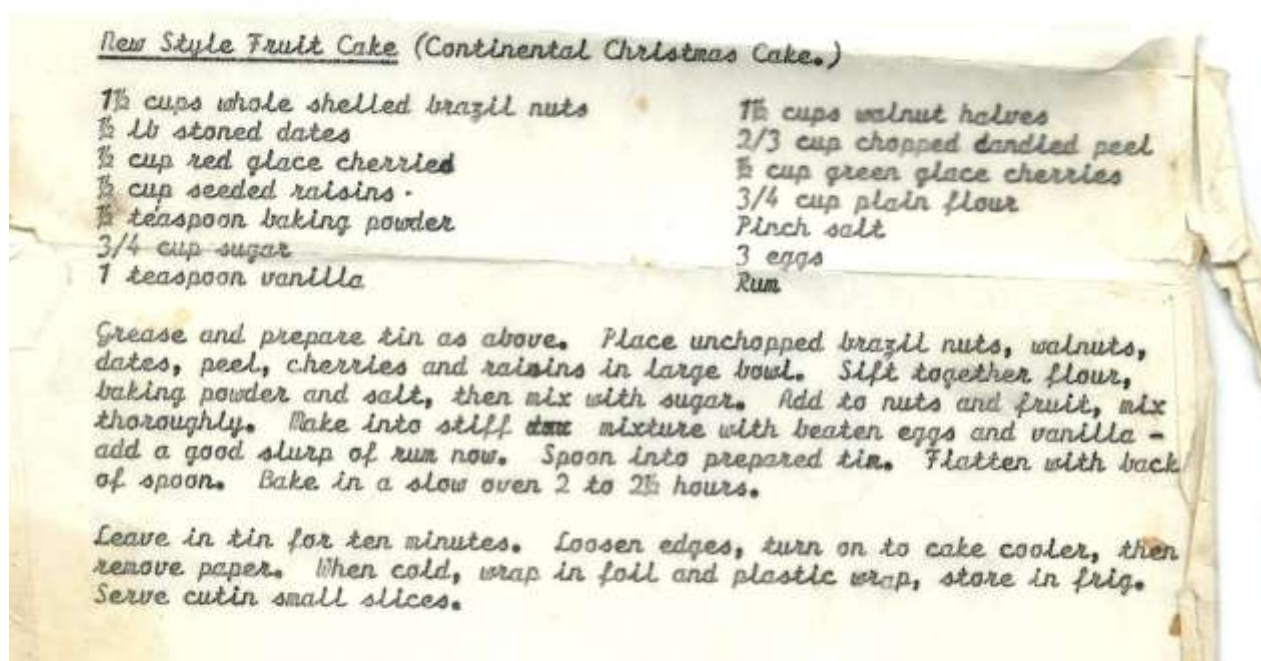 New Style Fruit Cake (Continental Christmas Cake.)
1½ cups whole shelled brazil nuts
½ lb stoned dates
½ cup red glace cherried
½ cup seeded raisins.
½ teaspoon baking powder
3/4 cup sugar
1 teaspoon vanilla
1½ cups walnut halves
2/3 cup chopped dandied peel
½ cup green glace cherries
3/4 cup plain flour
Pinch salt
3 eggs
Rum
Grease and prepare tin as above. Place unchopped brazil nuts, walnuts,
dates, peel, cherries and raisins in large bowl. Sift together flour,
baking powder and salt, then mix with sugar. Add to nuts and fruit, mix
thoroughly. Make into stiff mixture with beaten eggs and vanilla -
add a good slurp of rum now. Spoon into prepared tin. Flatten with back
of spoon. Bake in a slow oven 2 to 2½ hours.
Leave in tin for ten minutes. Loosen edges, turn on to cake cooler, then
remove paper. When cold, wrap in foil and plastic wrap, store in frig.
Serve cutin small slices.